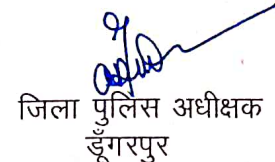 जिला पुलिस अधीक्षक
डूँगरपुर